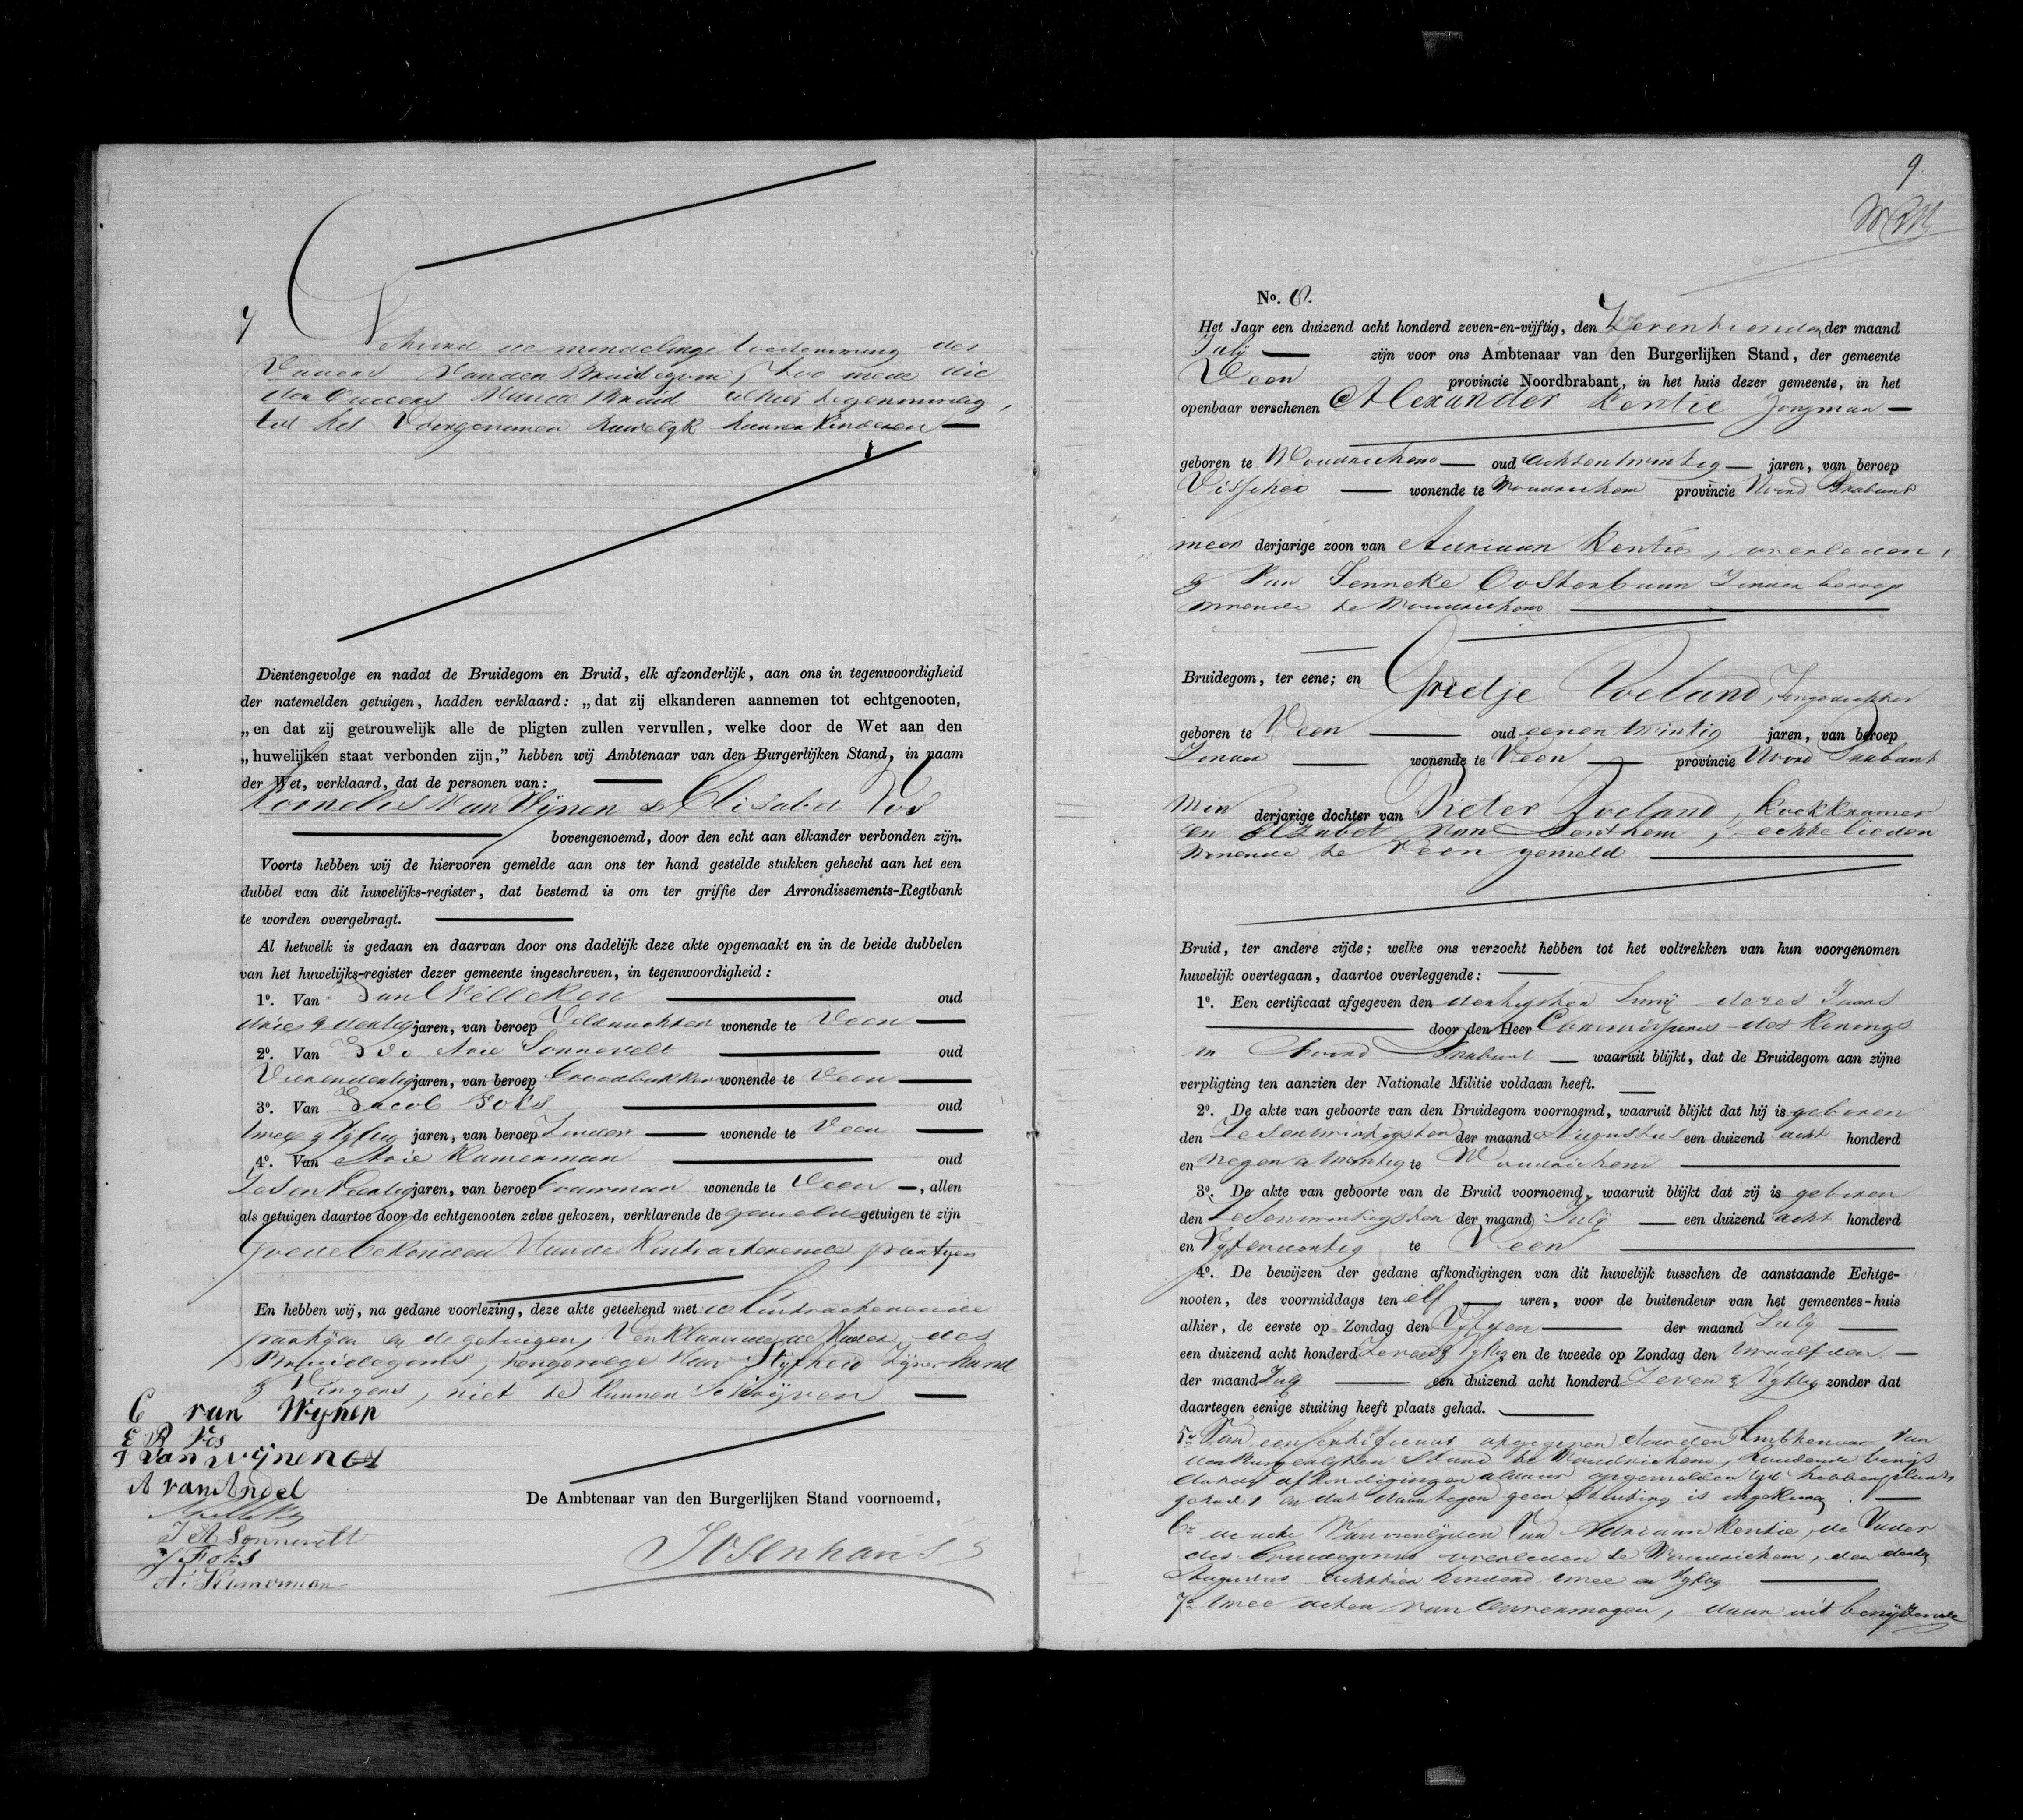 7
Gehoord de mondelinge toestemming des
Vaders van den Bruidegom, zoo mede die
der Ouders van de Bruid alhier tegenwoordig,
tot het voorgenomen huwelyk hunner kinderen
Dientengevolge en nadat de Bruidegom en Bruid, elk afzonderlijk, aan ons in tegenwoordigheid
der natemelden getuigen, hadden verklaard: „dat zij elkanderen aannemen tot echtgenooten,
„en dat zij getrouwelijk alle de pligten zullen vervullen, welke door de Wet aan den
„huwelijken staat verbonden zijn,” hebben wij Ambtenaar van den Burgerlijken Stand, in naam
der Wet, verklaard, dat de personen van:
Kornelis van Wijnen & Elisabet Vos
bovengenoemd, door den echt aan elkander verbonden zijn.
Voorts hebben wij de hiervoren gemelde aan ons ter hand gestelde stukken gehecht aan het een
dubbel van dit huwelijks-register, dat bestemd is om ter griffie der Arrondissements-Regtbank
te worden overgebragt.
Al hetwelk is gedaan en daarvan door ons dadelijk deze akte opgemaakt en in de beide dubbelen
van het huwelijks-register dezer gemeente ingeschreven, in tegenwoordigheid:
1o. Van Jan Willeken oud
drie & dertig jaren, van beroep Veldwachter wonende te Veen
2o. Van Ido Arie Sonnevelt oud
Vierendertig jaren, van beroep Broodbakker wonende te Veen
3o. Van Jacob Foks oud
twee & Vyftig jaren, van beroep Zonder wonende te Veen
4o. Van Arie Kamerman oud
Zesenveertig jaren, van beroep Bouwman wonende te Veen , allen
als getuigen daartoe door de echtgenooten zelve gekozen, verklarende de gemelde getuigen te zijn
goede bekenden van de kontracterende partyen
En hebben wij, na gedane voorlezing, deze akte geteekend met de Contracterende
partyen en de getuigen, Verklarende de Vader des
Bruidegoms, tengevolge van Styfheid zyner hand
& Vingers, niet te kunnen Schryven
C van Wynen
E R Vos
J Van wijnen
A van Andel
J A Sonnevelt
J Foks
A. Kamerman
De Ambtenaar van den Burgerlijken Stand voornoemd,
9.
No. 8.
Het Jaar een duizend acht honderd zeven-en-vijftig, den Zeventienden der maand
July zijn voor ons Ambtenaar van den Burgerlijken Stand, der gemeente
Veen provincie Noordbrabant, in het huis dezer gemeente, in het
openbaar verschenen Alexander Kentie Jongman
geboren te Woudrichem oud achtentwintig jaren, van beroep
Visscher wonende te Woudrichem provincie Noord Brabant
meer derjarige zoon van Adriaan Kentie, overleden,
& Van Jenneke Oosterbaan Zonder beroep
wonende te Woudrichem
Bruidegom, ter eene; en Grietje Voeland, Jongedochter
geboren te Veen oud eenentwintig jaren, van beroep
Zonder wonende te Veen provincie Noord Brabant
Min derjarige dochter van Pieter Voeland, Koekkramer
en Elzabet van Benthem, echtelieden
wonende te Veen gemeld
Bruid, ter andere zijde; welke ons verzocht hebben tot het voltrekken van hun voorgenomen
huwelijk overtegaan, daartoe overleggende:
1o. Een certificaat afgegeven den dertigsten Juny dezes Jaars
door den Heer Commissaris des Konings
in Noord Brabant waaruit blijkt, dat de Bruidegom aan zijne
verpligting ten aanzien der Nationale Militie voldaan heeft.
2o. De akte van geboorte van den Bruidegom voornoemd, waaruit blijkt dat hij is geboren
den Zesentwintigsten der maand Augustus een duizend acht honderd
en negen & twintig te Woudrichem
3o. De akte van geboorte van de Bruid voornoemd, waaruit blijkt dat zij is geboren
den Zesentwintigsten der maand July een duizend acht honderd
en Vyfendertig te Veen
4o. De bewijzen der gedane afkondigingen van dit huwelijk tusschen de aanstaande Echtge-
nooten, des voormiddags ten elf uren, voor de buitendeur van het gemeentes-huis
alhier, de eerste op Zondag den Vyfden der maand July
een duizend acht honderd Zeven & Vyftig en de tweede op Zondag den twaalfden
der maand July een duizend acht honderd Zeven & Vyftig zonder dat
daartegen eenige stuiting heeft plaats gehad.
5o Van een certificaat afgegeven door den Ambtenaar van
den Burgerlyken Stand te Woudrichem, houdende bewys
dat de afkondigingen aldaar opgemelden tyd hebben plaats
gehad, en dat daartegen geen Stuiting is ingekomen.
6o de acte van overlyden van Adriaan Kentie, de Vader
des Bruidegoms overleden te Woudrichem, den
Augustus achttien honderd twee en Vyftig
7o twee acten van onvermogen, daar uit